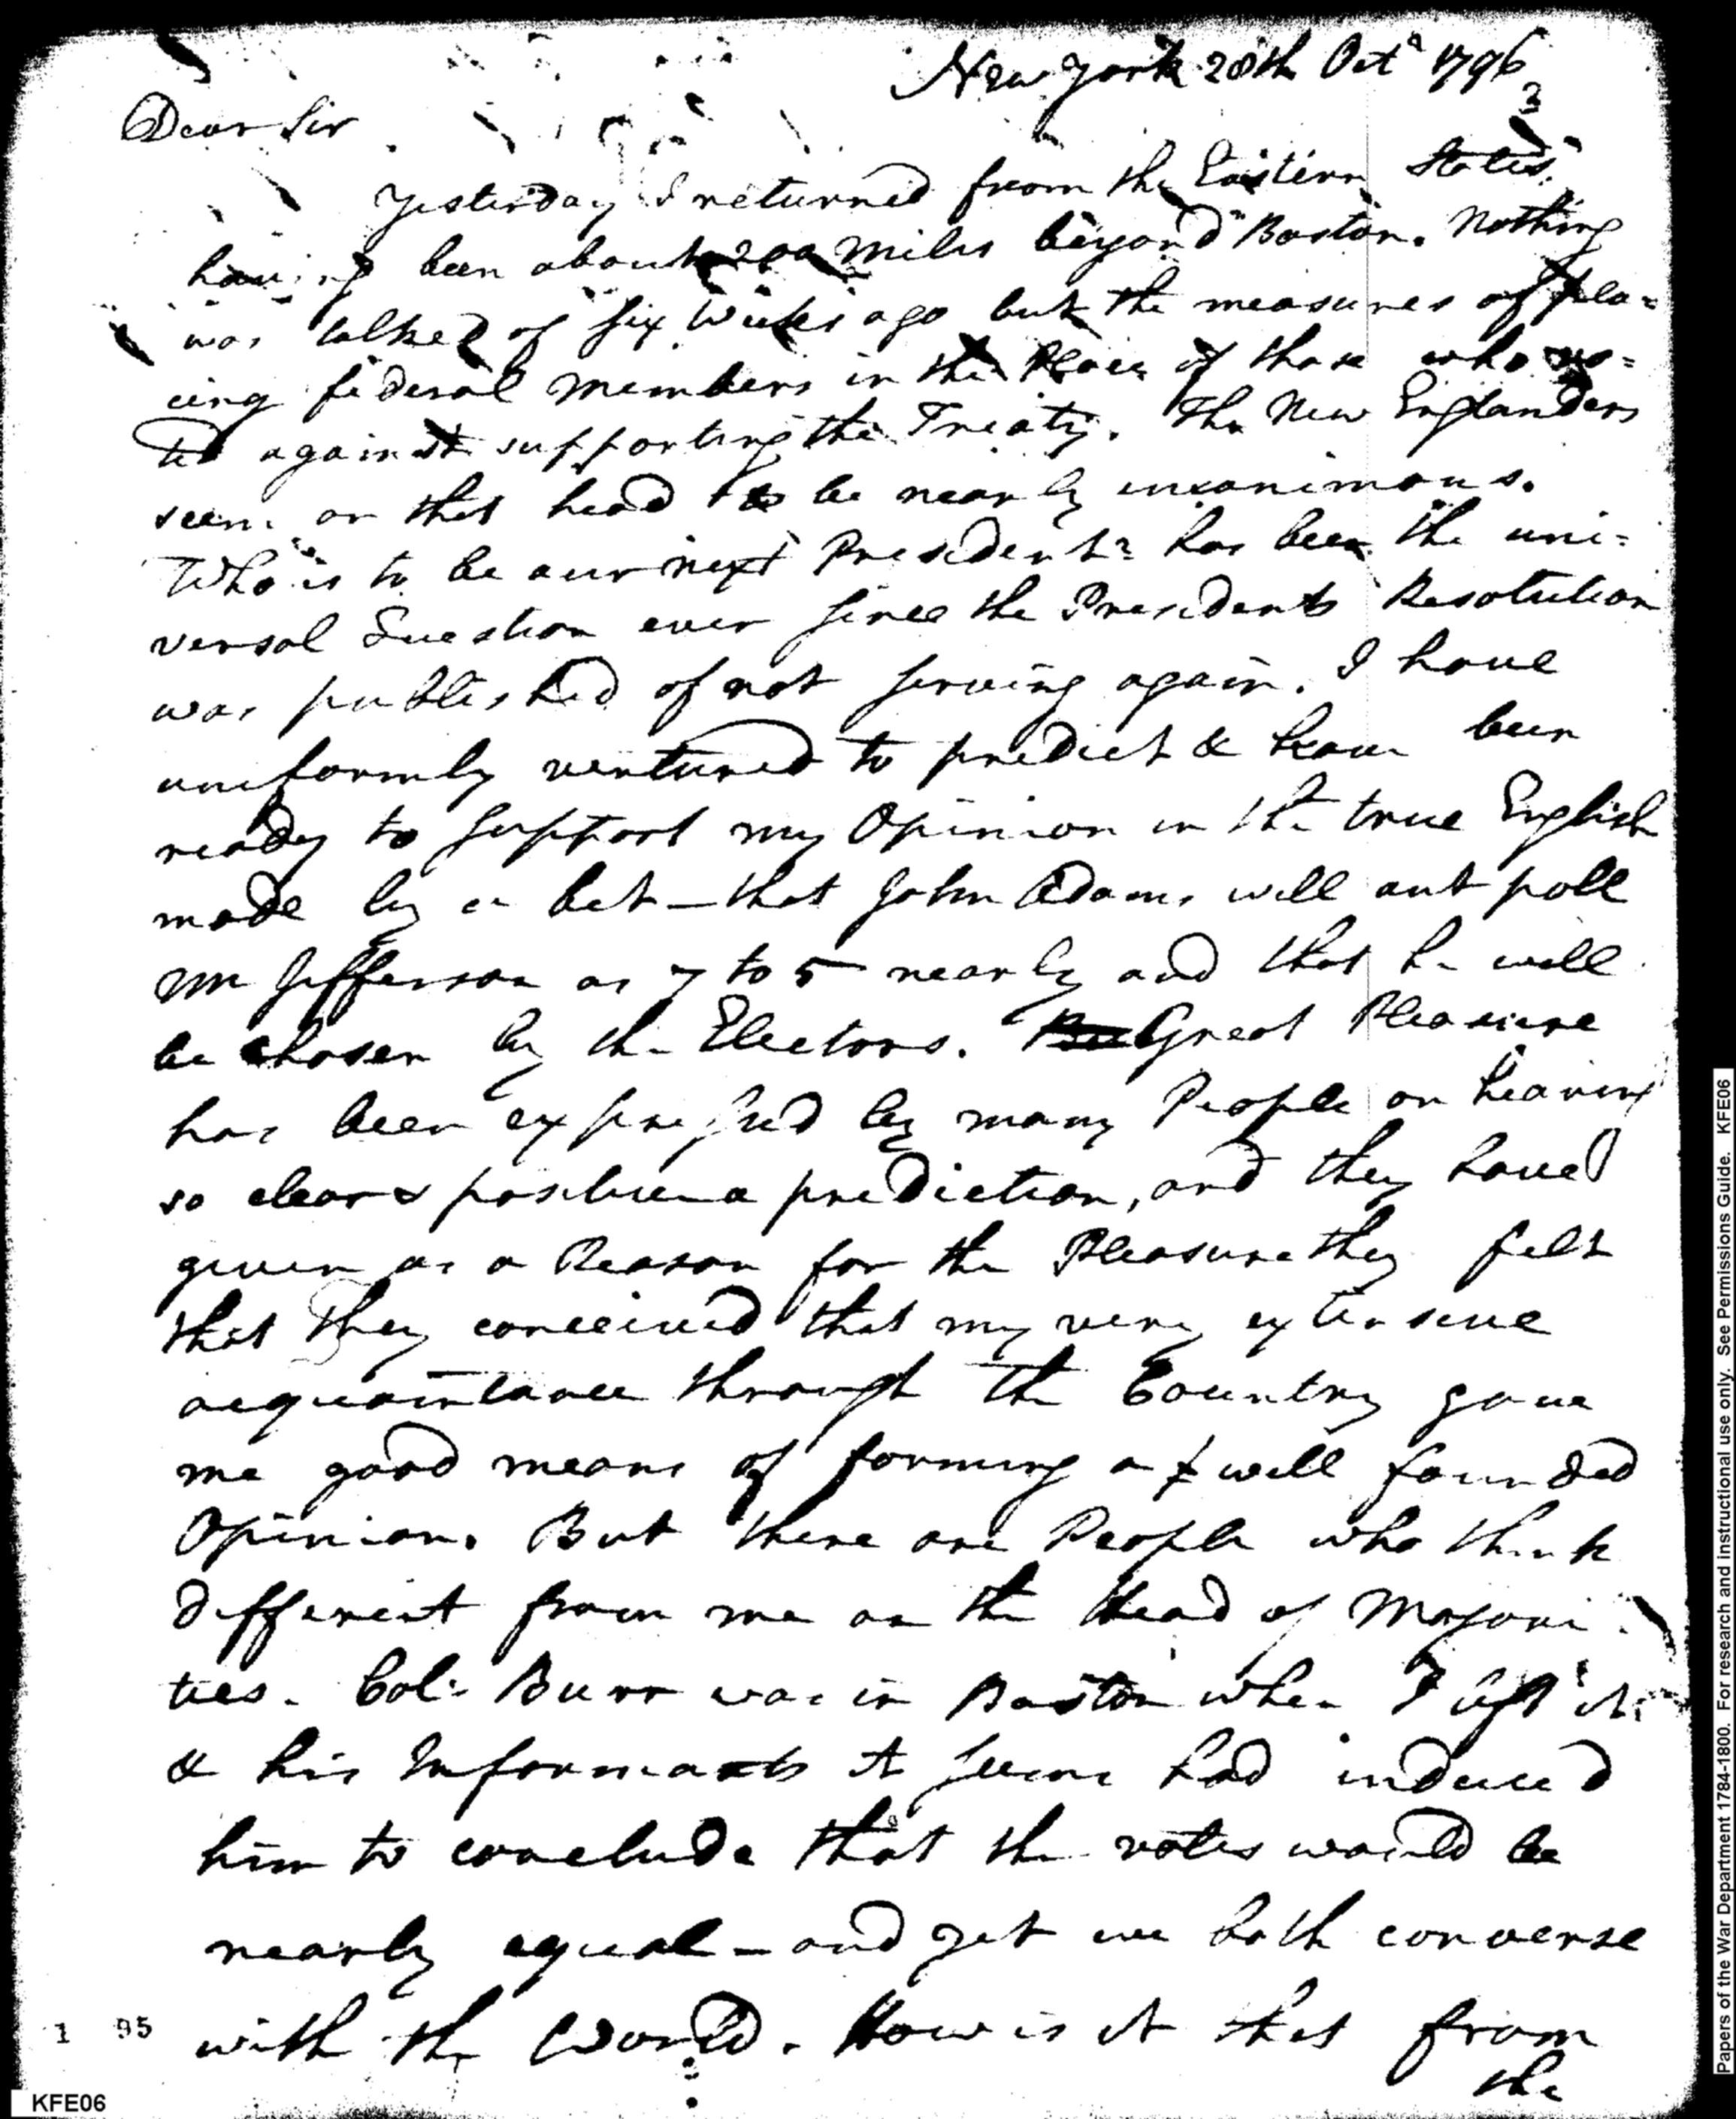 New York 20th Octr 1796
2
Dear Sir
Yesterday I returned from the Eastern States,
having been about 200 Miles beyond Boston. Nothing
was talked of six Weeks ago but the measures of pla=
cing federal members in the Place of those who vo=
ted against supporting the Treaty. The New Englanders
seem on that head to be nearly unanimous.
Who is to be our next President? has been the uni=
versal Question ever since the Presidents Resolution
was published of not serving again. I have
uniformly ventured to predict & have been
ready to support my Opinion in the true English
mode by a bet – that John Adams will out poll
Mr Jefferson as 7 to 5 nearly and that he will
be chosen by the Electors. Great Pleasure
has been expressed by many People on hearing
so clear & positive a prediction, and they have
given as a Reason for the Pleasure they felt
that they conceived that my very extensive
acquaintance through the Country gave
me good means of forming a well founded
Opinion. But there are People who think
different from me on the Head of Majori
ties. Col. Burr was in Boston when I left it,
& his Informants it seems had induced
him to conclude that the votes would be
nearly equal – and yet we both converse
with the World. How is it that from
the
1 95
KFE06
Papers of the War Department 1784-1800. For research and instructional use only. See Permissions Guide. KFE06